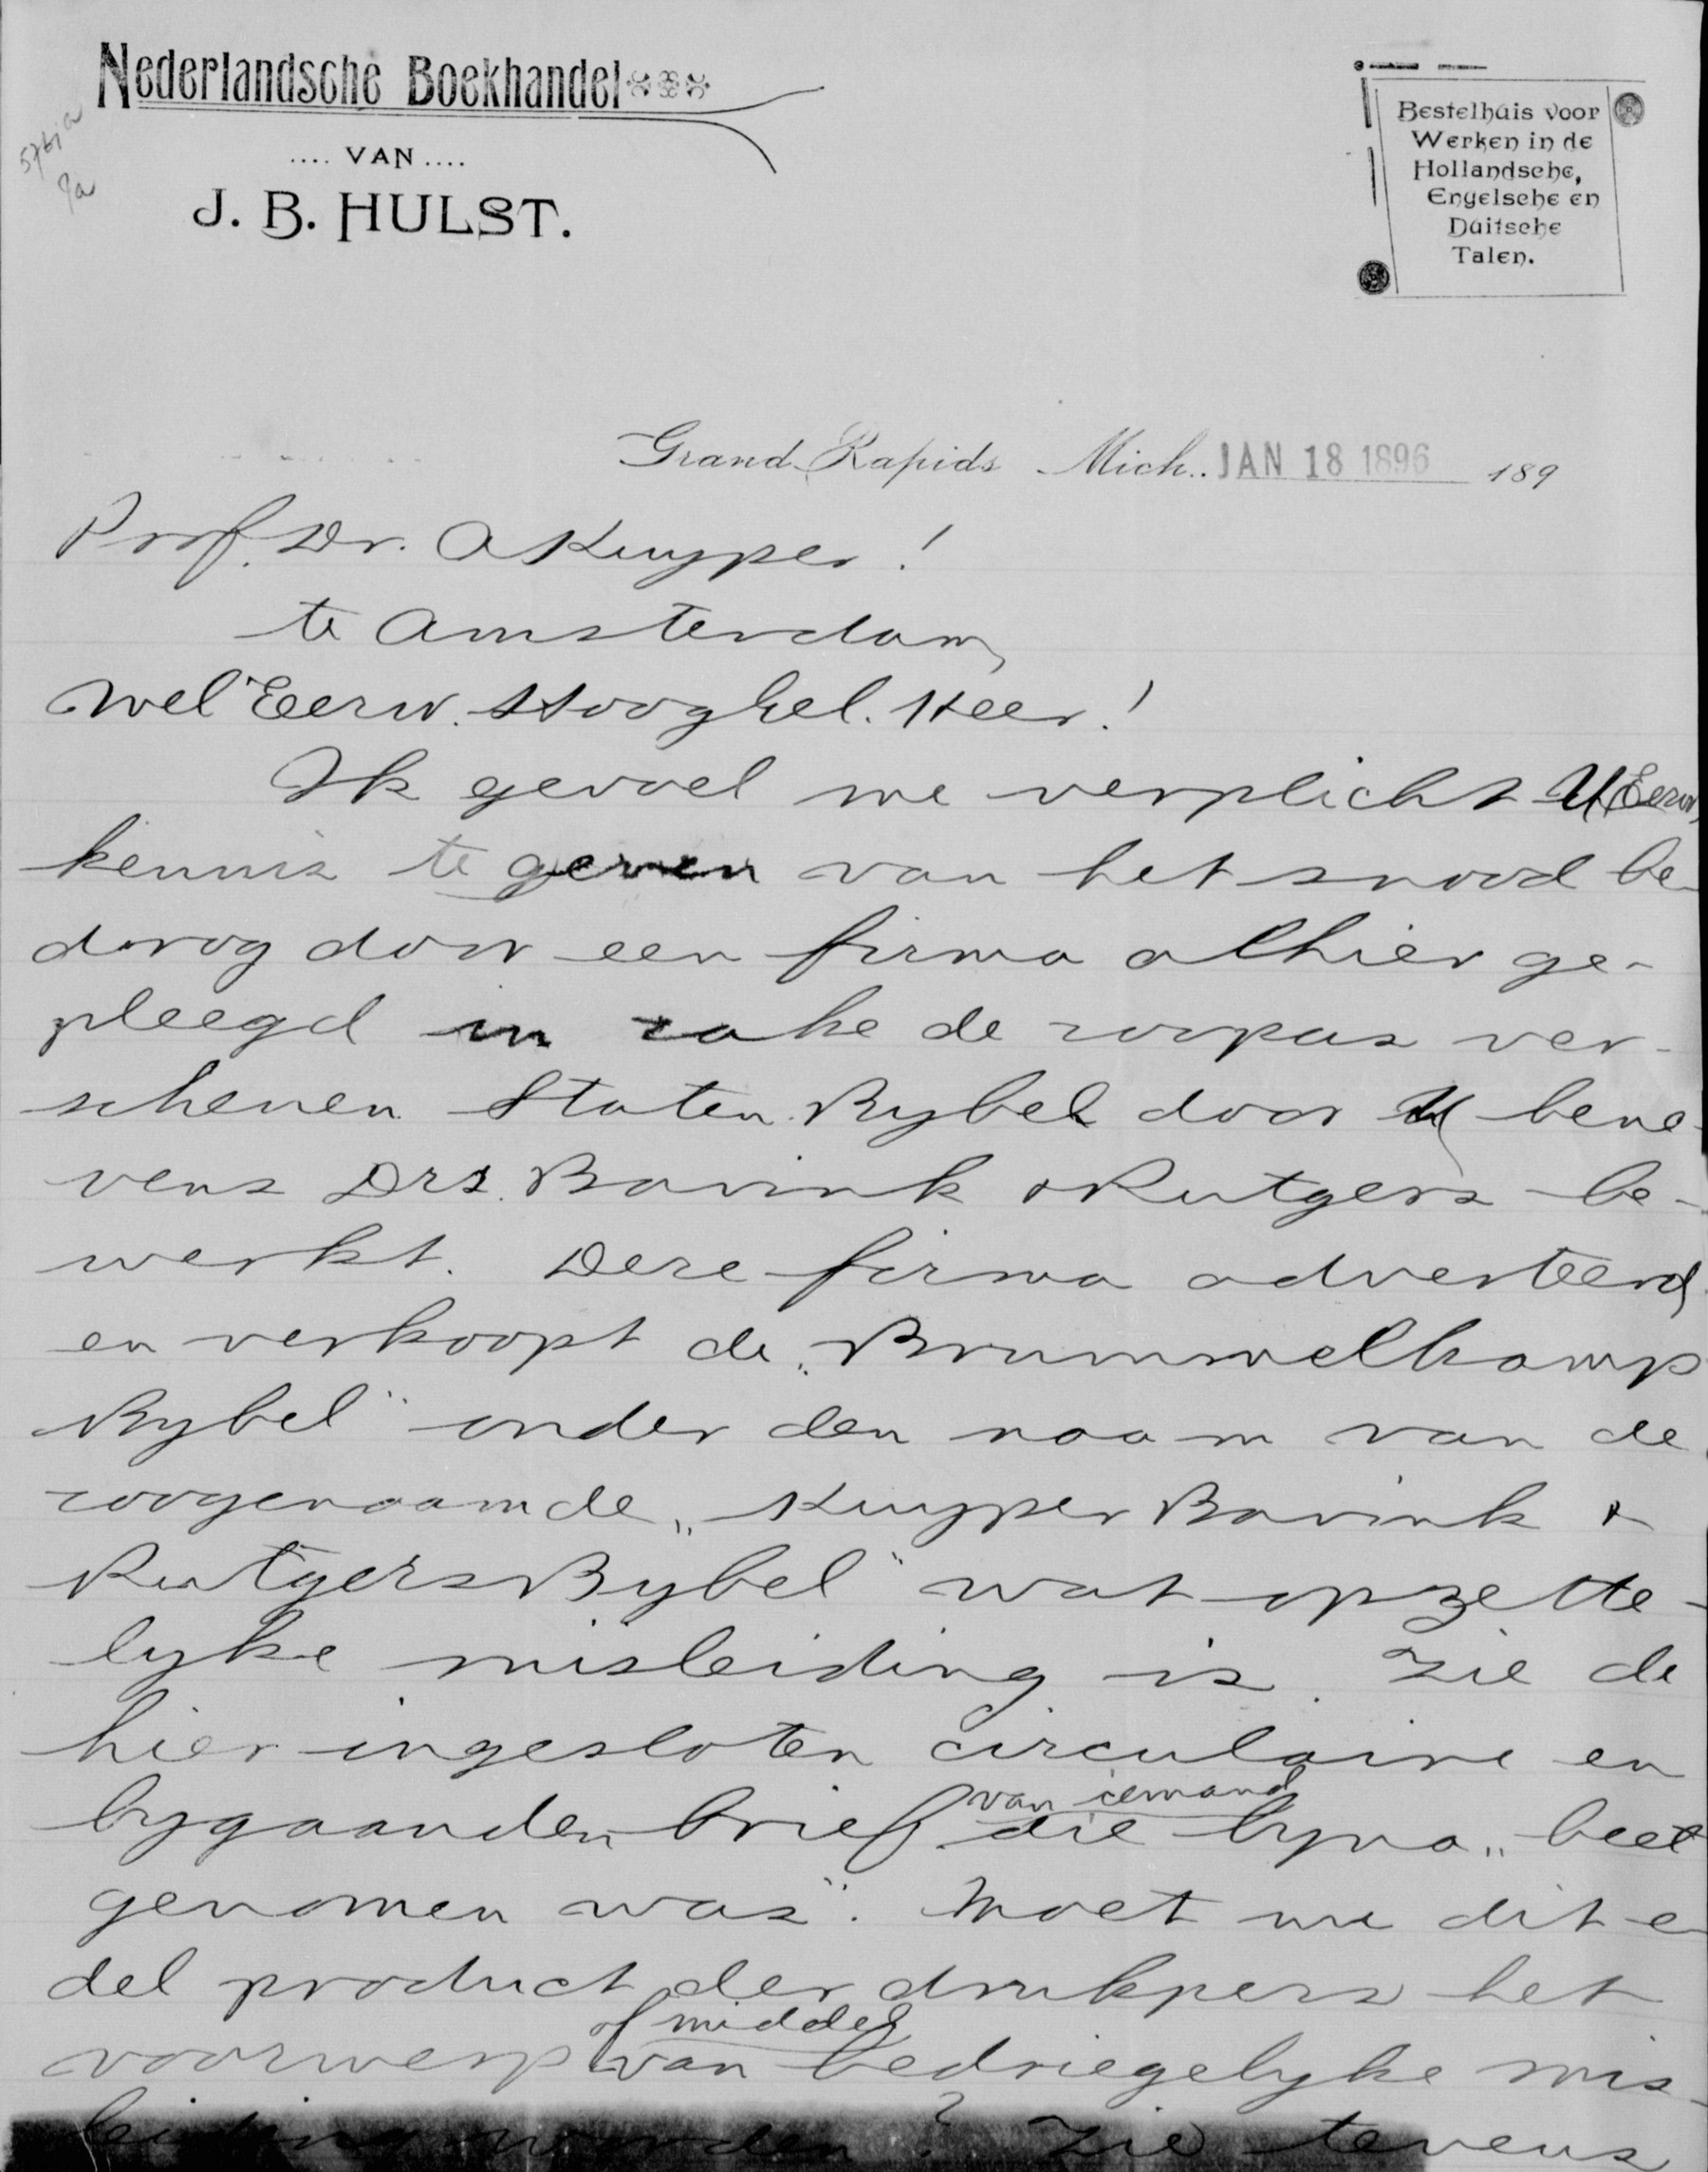 Nederlandsche Boekhandel
.... VAN ....
J. B. HULST.
Bestelhuis voor
Werken in de
Hollandsche,
Engelsche en
Duitsche
Talen.
Grand Rapids Mich. JAN 18 1896 189
Prof. Dr. A Kuyper!
te Amsterdam,
Wel Eerw. Hooghel. Heer!
Ik gevoel me verplicht UEerw,
kennis te geven van het snood be-
drog door een firma alhier ge-
pleegd in zake de zoopas ver-
schenen Staten Bybel door U bene-
vens Drs. Bavink & Rutgers be-
werkt. Deze firma adverteerd
en verkoopt de „Brummelkamp
Bybel" onder den naam van de
zoogenaamde „Kuyper Bavink &
Rutgers Bybel" wat opzette-
lyke misleiding is. Zie de
hier ingesloten circulaire en
bygaanden brief van iemand die byna „beet
genomen was". Moet nu dit e-
del product der drukpers het
voorwerp of middel van bedriegelyke mis-
leiding worden? Zie tevens